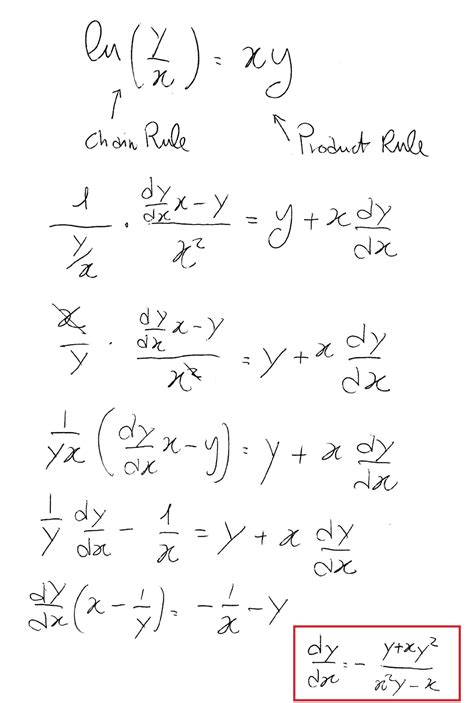 ln(y/x) = xy
Chain Rule
Product Rule
1/(y/x) · (dy/dx x − y)/x² = y + x dy/dx
x/y · (dy/dx x − y)/x² = y + x dy/dx
1/yx (dy/dx x − y) = y + x dy/dx
1/y dy/dx − 1/x = y + x dy/dx
dy/dx (x − 1/y) = − 1/x − y
dy/dx = − (y+xy²)/(x²y−x)